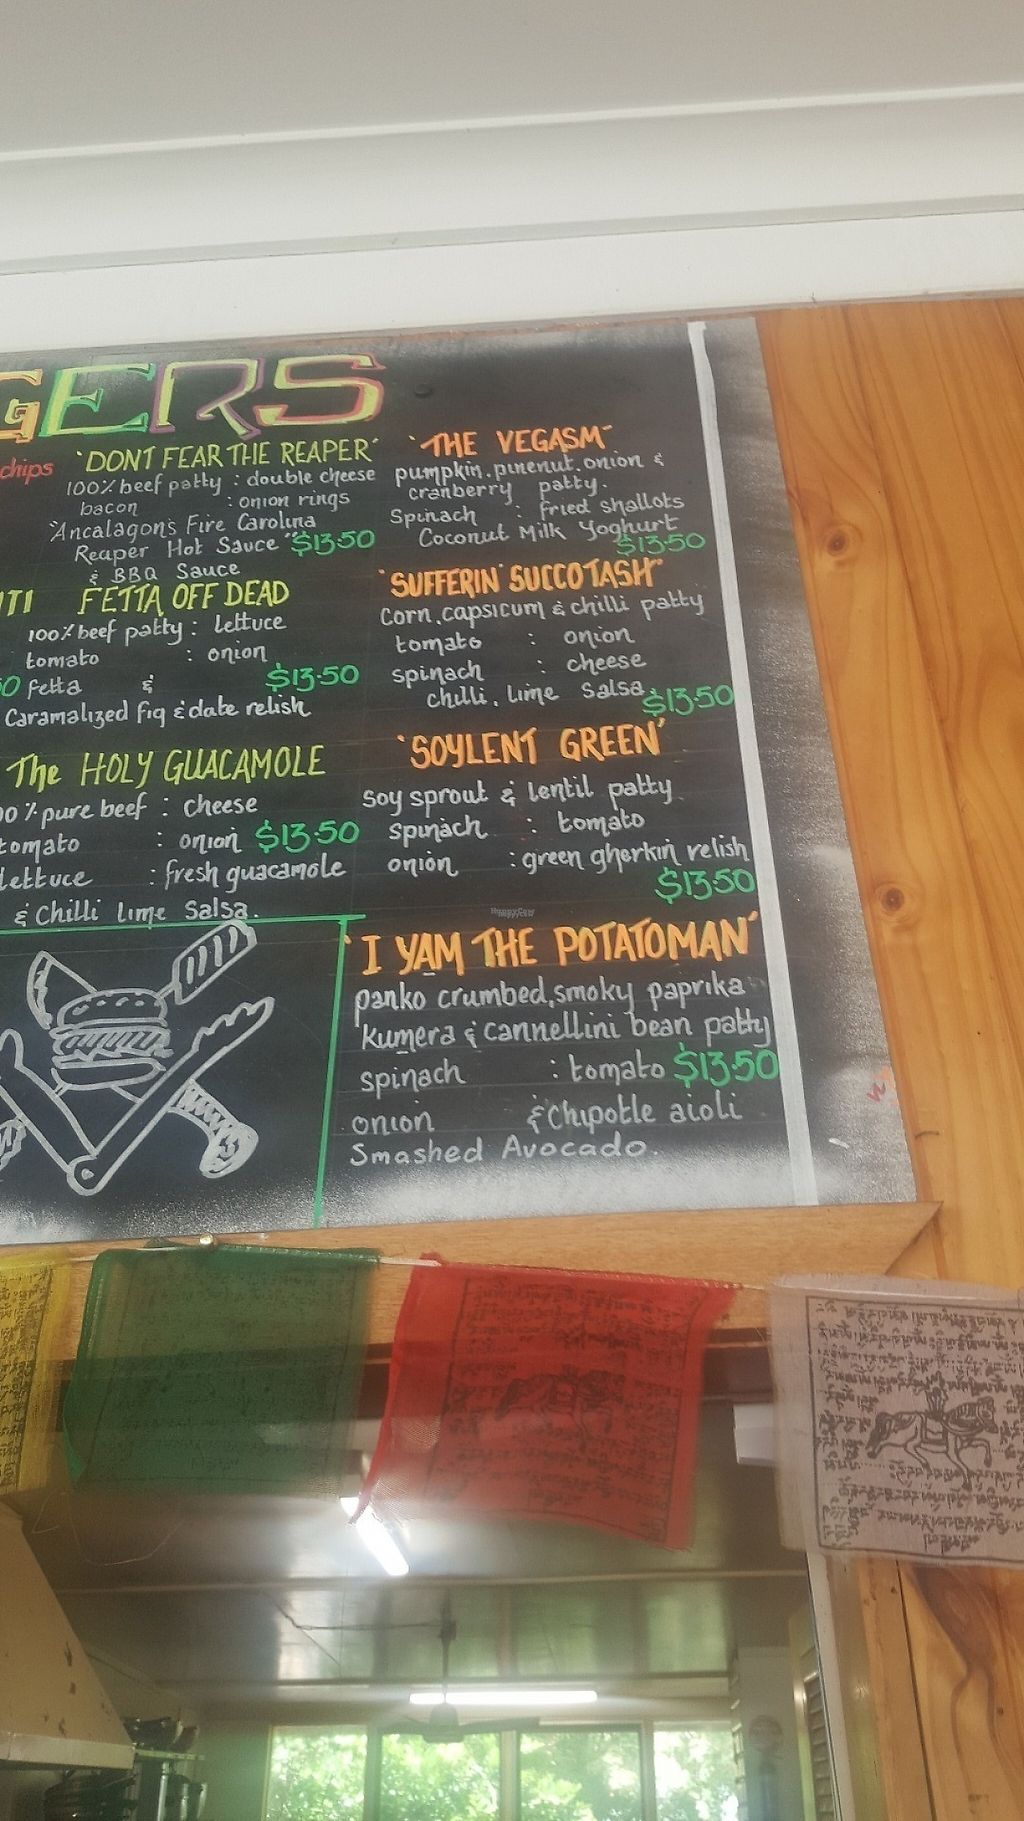 GERS
chips
'DONT FEAR THE REAPER'
100% beef patty : double cheese
bacon : onion rings
"Ancalagon's Fire Carolina
Reaper Hot Sauce" $13.50
& BBQ Sauce
ITI FETTA OFF DEAD
100% beef patty : lettuce
tomato : onion
0 fetta & $13.50
Caramalized fig & date relish
The HOLY GUACAMOLE
00% pure beef : cheese
tomato : onion $13.50
lettuce : fresh guacamole
& Chilli Lime Salsa.
'THE VEGASM'
pumpkin. pinenut. onion &
cranberry patty.
Spinach : fried shallots
Coconut Milk Yoghurt
$13.50
'SUFFERIN' SUCCOTASH'
Corn, capsicum & chilli patty
tomato : onion
spinach : cheese
chilli, lime salsa $13.50
'SOYLENT GREEN'
Soy sprout & lentil patty
spinach : tomato
onion : green gherkin relish
$13.50
'I YAM THE POTATOMAN'
panko crumbed, smoky paprika
kumera & cannellini bean patty
spinach : tomato $13.50
onion & Chipotle aioli
Smashed Avocado.